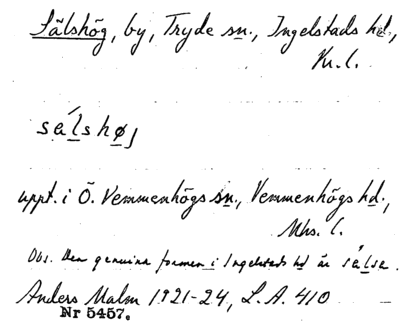 Sälshög, by, Tryde sn., Ingelstads hd.,
Kr. l.
sálshøj
uppt. i Ö. Vemmenhögs sn., Vemmenhögs hd.,
Mhs. l.
Obs. Den genuina formen i Ingelstads hd är sálsa.
Anders Malm 1921-24, L.A. 410
Nr 5457.